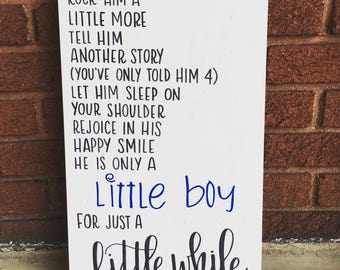 ROCK HIM A
LITTLE MORE
TELL HIM
ANOTHER STORY
(YOU'VE ONLY TOLD HIM 4)
LET HIM SLEEP ON
YOUR SHOULDER
REJOICE IN HIS
HAPPY SMILE
HE IS ONLY A
Little boy
FOR JUST A
little while